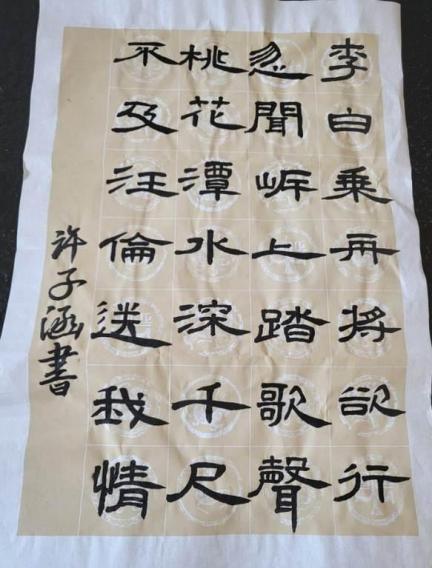 李白乘舟将欲行
忽聞岸上踏歌聲
桃花潭水深千尺
不及汪倫送我情
許子涵書